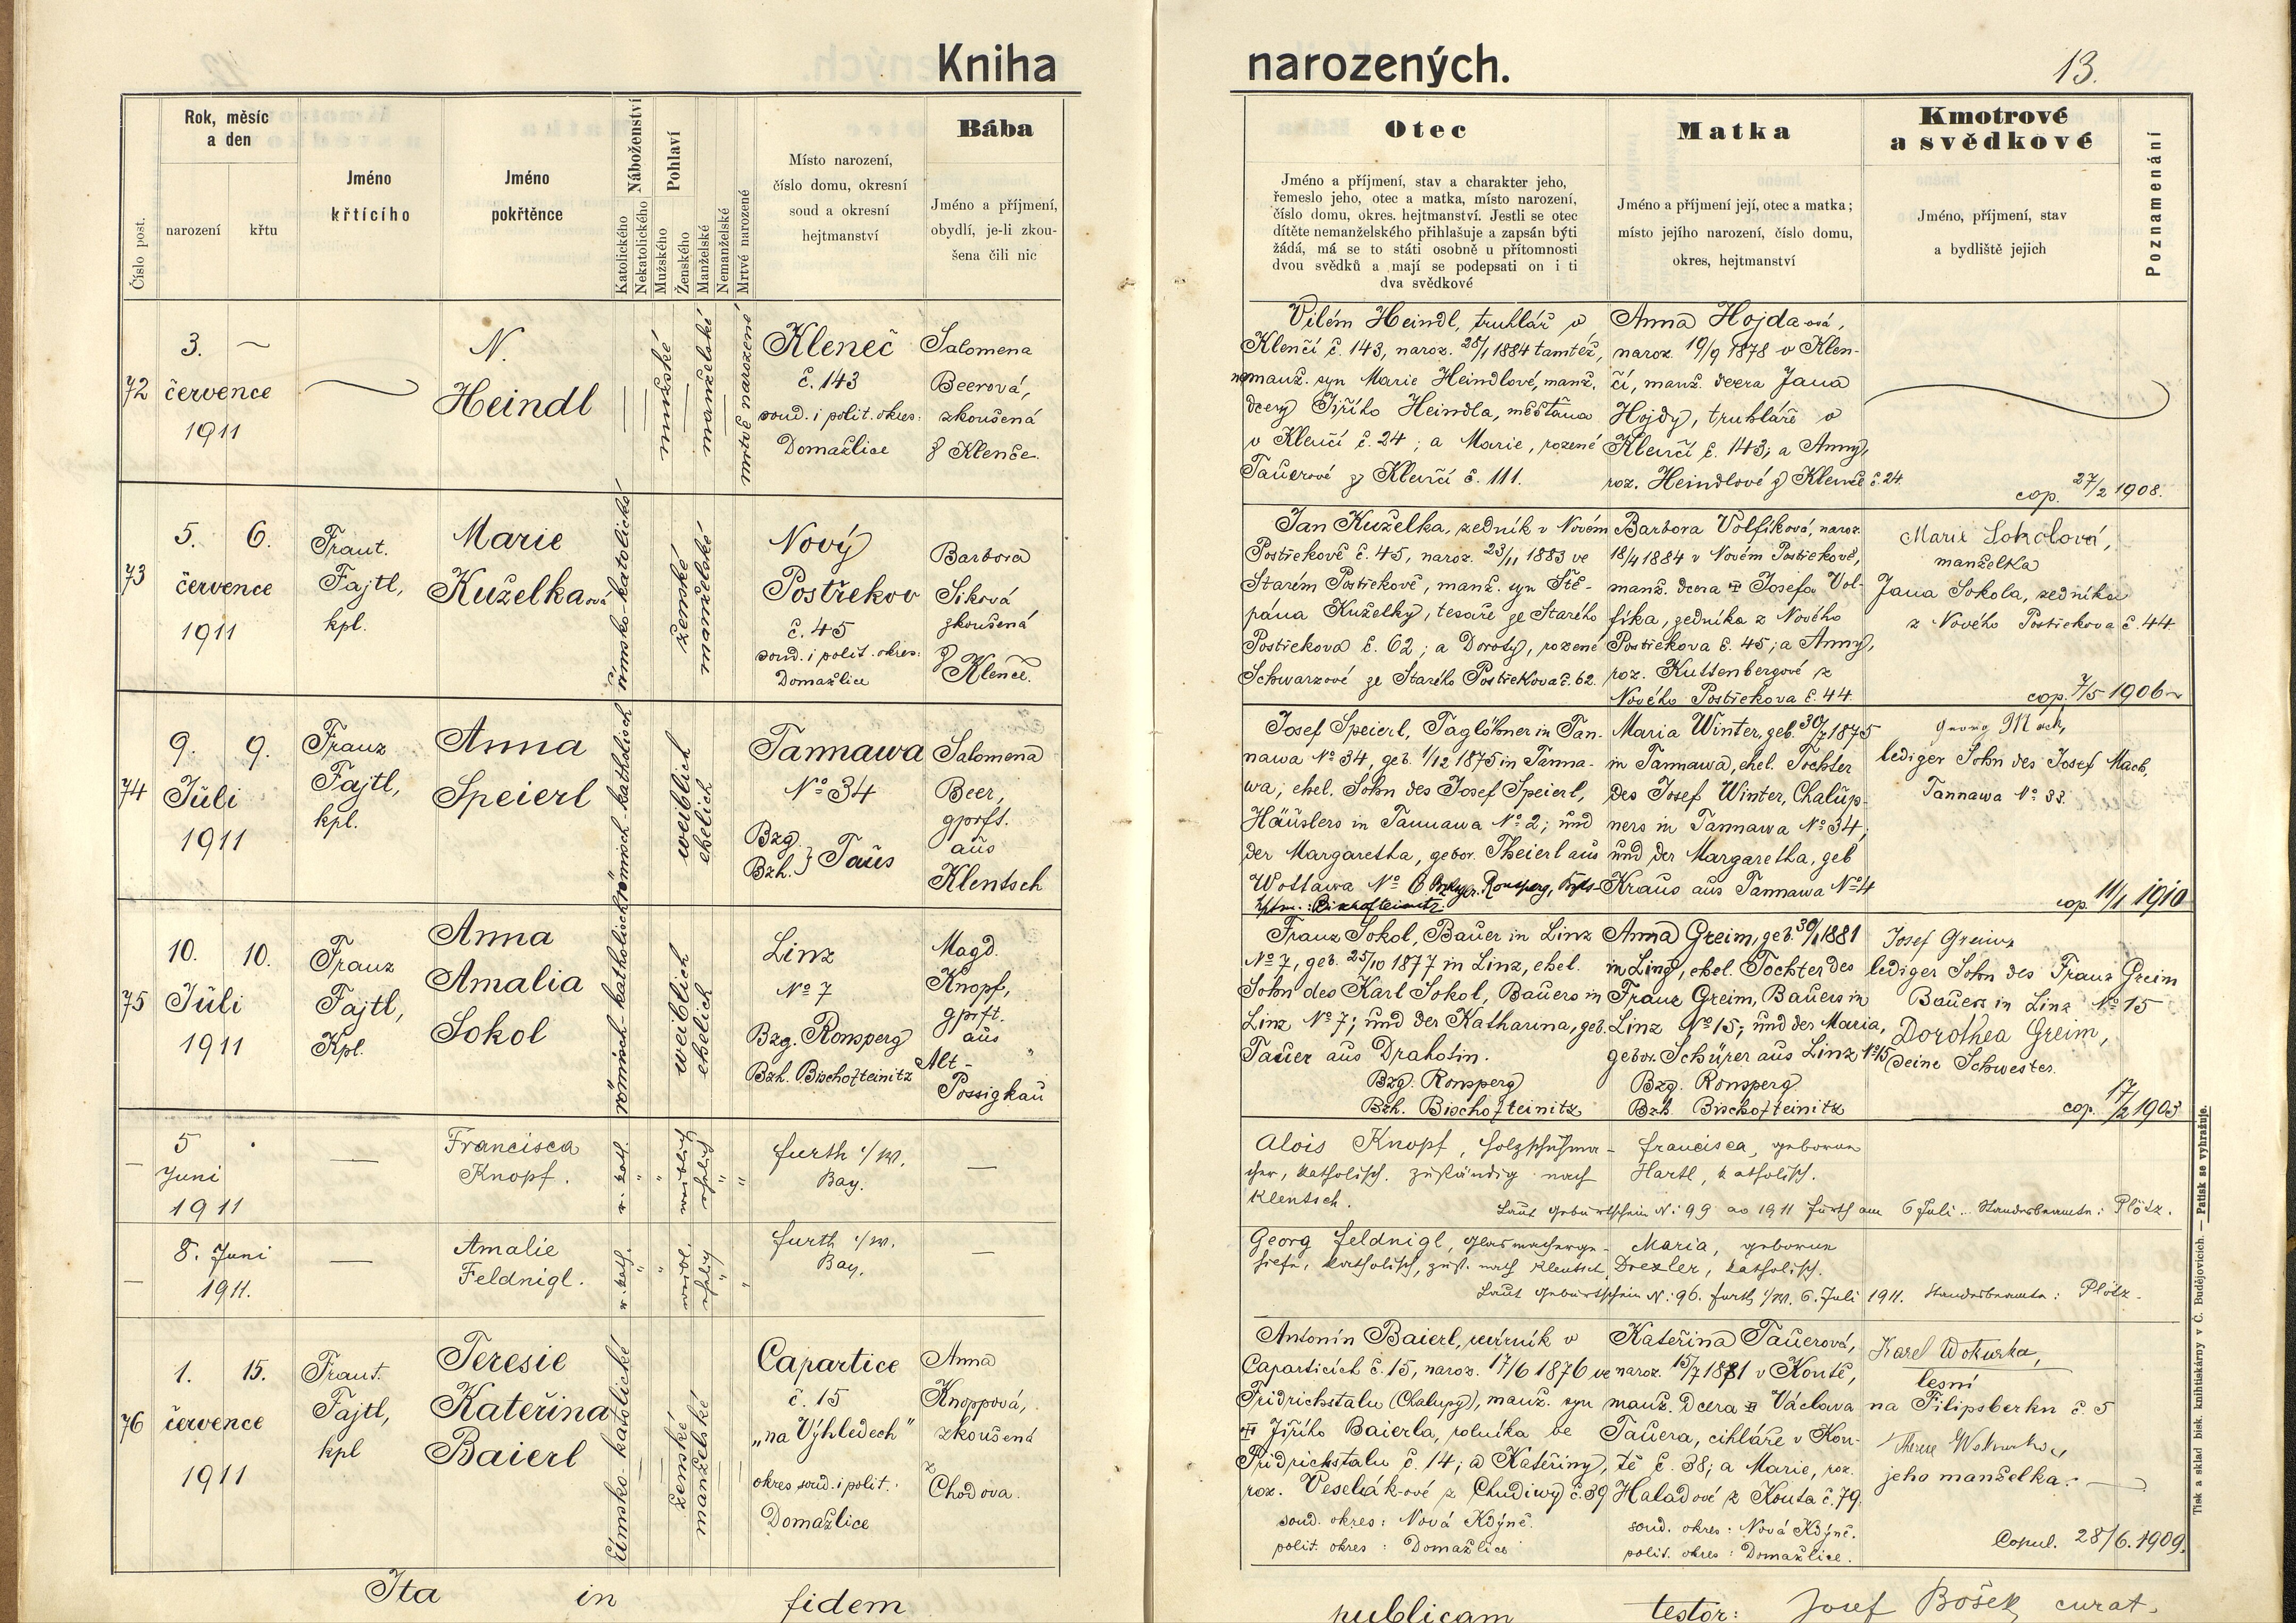 Kniha narozených.
13.
Číslo post.
Rok, měsíc
a den
narození
křtu
Jméno
křtícího
Jméno
pokřtěnce
Náboženství
Katolického
Nekatolického
Pohlaví
Mužského
Ženského
Manželské
Nemanželské
Mrtvě narozené
Místo narození,
číslo domu, okresní
soud a okresní
hejtmanství
Bába
Jméno a příjmení,
obydlí, je-li zkou-
šena čili nic
Otec
Jméno a příjmení, stav a charakter jeho,
řemeslo jeho, otec a matka, místo narození,
číslo domu, okres. hejtmanství. Jestli se otec
dítěte nemanželského přihlašuje a zapsán býti
žádá, má se to státi osobně u přítomnosti
dvou svědků a mají se podepsati on i ti
dva svědkové
Matka
Jméno a příjmení její, otec a matka;
místo jejího narození, číslo domu,
okres, hejtmanství
Kmotrové
a svědkové
Jméno, příjmení, stav
a bydliště jejich
Poznamenání
72
3. —
července
1911
N.
Heindl
mužské
manželské
mrtvě narozené
Kleneč
č. 143
soud. i polit. okres:
Domažlice
Salomena
Beerová,
zkoušená
z Klenče.
Vilém Heindl, truhlář v
Klenčí č. 143, naroz. 28/1 1884 tamtéž,
nemanž. syn Marie Heindlové, manž.
dcery Jiřího Heindla, měšťana
v Klenčí č. 24; a Marie, rozené
Tauerové z Klenčí č. 111.
Anna Hojda-ová,
naroz. 19/9 1878 v Klen-
čí, manž. dcera Jana
Hojdy, truhláře v
Klenčí č. 143; a Anny,
roz. Heindlové z Klenče č. 24.
cop. 27/2 1908.
73
5. 6.
července
1911
Frant.
Fajtl,
kpl.
Marie
Kuželka-ová
římsko-katolické
ženské
manželské
Nový
Postřekov
č. 45
soud. i polit. okres:
Domažlice
Barbora
Siková
zkoušená
z Klenče.
Jan Kuželka, zedník v Novém
Postřekově č. 45, naroz. 23/11 1883 ve
Starém Postřekově, manž. syn Ště-
pána Kuželky, tesaře ze Starého
Postřekova č. 62; a Doroty, rozené
Schwarzové ze Starého Postřekova č. 62.
Barbora Volfíková, naroz.
18/4 1884 v Novém Postřekově,
manž. dcera Josefa Vol-
fíka, zedníka z Nového
Postřekova č. 45; a Anny,
roz. Kuttenbergové z
Nového Postřekova č. 44.
Marie Sokolová,
manželka
Jana Sokola, zedníka
z Nového Postřekova č. 44.
cop. 7/5 1906
74
9. 9.
Juli
1911
Franz
Fajtl,
kpl.
Anna
Speierl
römisch-katholisch
weiblich
ehelich
Tannawa
No 34
Bzg.
Bzh. } Taus
Salomena
Beer,
gprft.
aus
Klentsch
Josef Speierl, Taglöhner in Tan-
nawa No 34, geb. 1/12 1875 in Tanna-
wa; ehel. Sohn des Josef Speierl,
Häuslers in Tannawa No 2; und
der Margaretha, gebor. Theierl aus
Wottawa No 6 Ronsperg,
Bischofteinitz.
Maria Winter, geb. 30/7 1875
in Tannawa, ehel. Tochter
des Josef Winter, Chalup-
ners in Tannawa No 34;
und der Margaretha, geb
Kraus aus Tannawa No 4
Georg Mach,
lediger Sohn des Josef Mach,
Tannawa No 33.
cop. 11/1 1910
75
10. 10.
Juli
1911
Franz
Fajtl,
Kpl.
Anna
Amalia
Sokol
römisch-katholisch
weiblich
ehelich
Linz
No 7
Bzg. Ronsperg
Bzh. Bischofteinitz
Magd.
Knopf,
gprft.
aus
Alt-
Possigkau
Franz Sokol, Bauer in Linz
No 7, geb. 25/10 1877 in Linz, ehel.
Sohn des Karl Sokol, Bauers in
Linz No 7; und der Katharina, geb.
Tauer aus Drahotin.
Bzg. Ronsperg
Bzh. Bischofteinitz
Anna Greim, geb. 30/1 1881
in Linz, ehel. Tochter des
Franz Greim, Bauers in
Linz No 15; und der Maria,
gebor. Schürer aus Linz No 15
Bzg. Ronsperg.
Bzh. Bischofteinitz
Josef Greim
lediger Sohn des Franz Greim
Bauers in Linz No 15
Dorothea Greim,
seine Schwester.
cop. 17/2 1903
—
5
Juni
1911
—
Francisca
Knopf.
r. kath.
weiblich
ehelich
furth i/W.
Bay.
—
Alois Knopf, Holzschuhma-
cher, katholisch. zuständig nach
Klentsch.
francisca, geborene
Hartl, katholisch.
Laut Geburtschein N: 99 ao 1911 Furth am 6 Juli. Standesbeamte: Plötz.
—
8. Juni
1911.
—
Amalie
Feldnigl.
r. kath.
weibl.
ehelich
furth i/W.
Bay.
—
Georg Feldnigl, Glasmacherge-
hilfe, katholisch, zust. nach Klentsch,
Maria, geborene
Drexler, katholisch.
Laut Geburtschein N: 96. furth i/W. 6. Juli 1911. Standesbeamte: Plötz.
76
1. 15.
července
1911
Frant.
Fajtl,
kpl
Teresie
Kateřina
Baierl
římsko katolické
ženské
manželské
Capartice
č. 15
„na Výhledech"
okres soud. i polit.:
Domažlice
Anna
Knoppová,
zkoušená
z
Chodova.
Antonín Baierl, cvírník v
Caparticích č. 15, naroz. 17/6 1876 ve
Fridrichstalu (Chalupy), manž. syn
Jiřího Baierla, rolníka ve
Fridrichstalu č. 14; a Kateřiny,
roz. Veselák-ové z Chudiwy č. 39
soud. okres: Nová Kdýně.
polit. okres: Domažlice
Kateřina Tauerová,
naroz. 15/7 1881 v Koutě,
manž. dcera Václava
Tauera, cihláře v Kou-
tě č. 38; a Marie, roz.
Haladové z Kouta č. 79.
soud. okres: Nová Kdýně.
polit. okres: Domažlice.
Karel Wokurka,
lesní
na Filipsberku č. 5
Therese Wokurka,
jeho manželka.
Copul. 28/6. 1909.
Ita in fidem publicam testor: Josef Bošek curat.
Tisk a sklad bisk. knihtiskárny v Č. Budějovicích. — Patisk se vyhražuje.